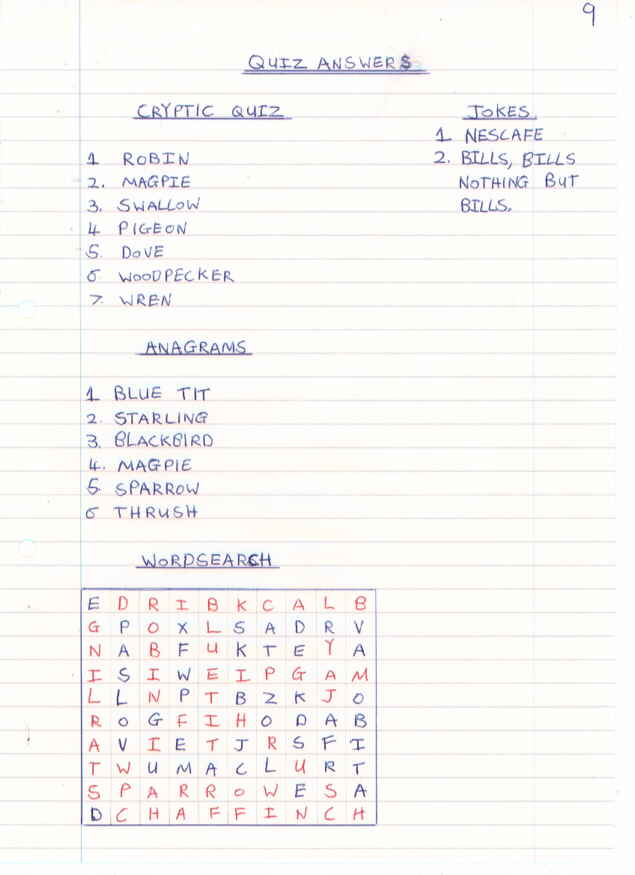 9
QUIZ ANSWERS
CRYPTIC QUIZ
1 ROBIN
2. MAGPIE
3. SWALLOW
4 PIGEON
5. DOVE
6 WOODPECKER
7. WREN
JOKES
1 NESCAFE
2. BILLS, BILLS
NOTHING BUT
BILLS.
ANAGRAMS
1 BLUE TIT
2. STARLING
3. BLACKBIRD
4. MAGPIE
5 SPARROW
6 THRUSH
WORDSEARCH
E D R I B K C A L B
G P O X L S A D R V
N A B F U K T E Y A
I S I W E I P G A M
L L N P T B Z K J O
R O G F I H O D A B
A V I E T J R S F I
T W U M A C L U R T
S P A R R O W E S A
D C H A F F I N C H